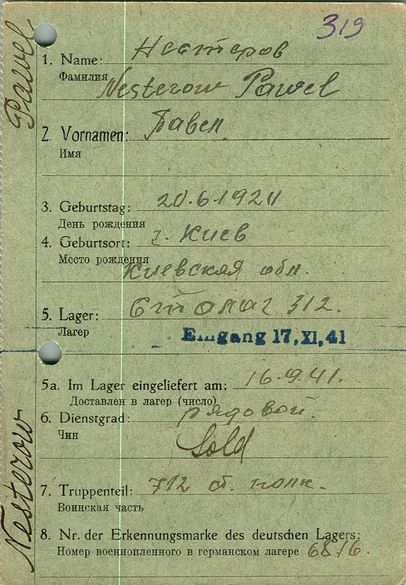 319
1. Name: Нестеров
Фамилия Nesterow Pawel
2. Vornamen: Павел
Имя
3. Geburtstag:
День рождения
4. Geburtsort: г. Киев
Место рождения Киевская обл.
5. Lager: Сталаг 312.
Лагер
Eingang 17. XI. 41
5a. Im Lager eingeliefert am: 16.9.41.
Доставлен в лагер (число)
6. Dienstgrad: рядовой.
Чин Sold
7. Truppenteil: 712 полк.
Воинская часть
8. Nr. der Erkennungsmarke des deutschen Lagers:
Номер военнопленного в германском лагере
Nesterow Pawel